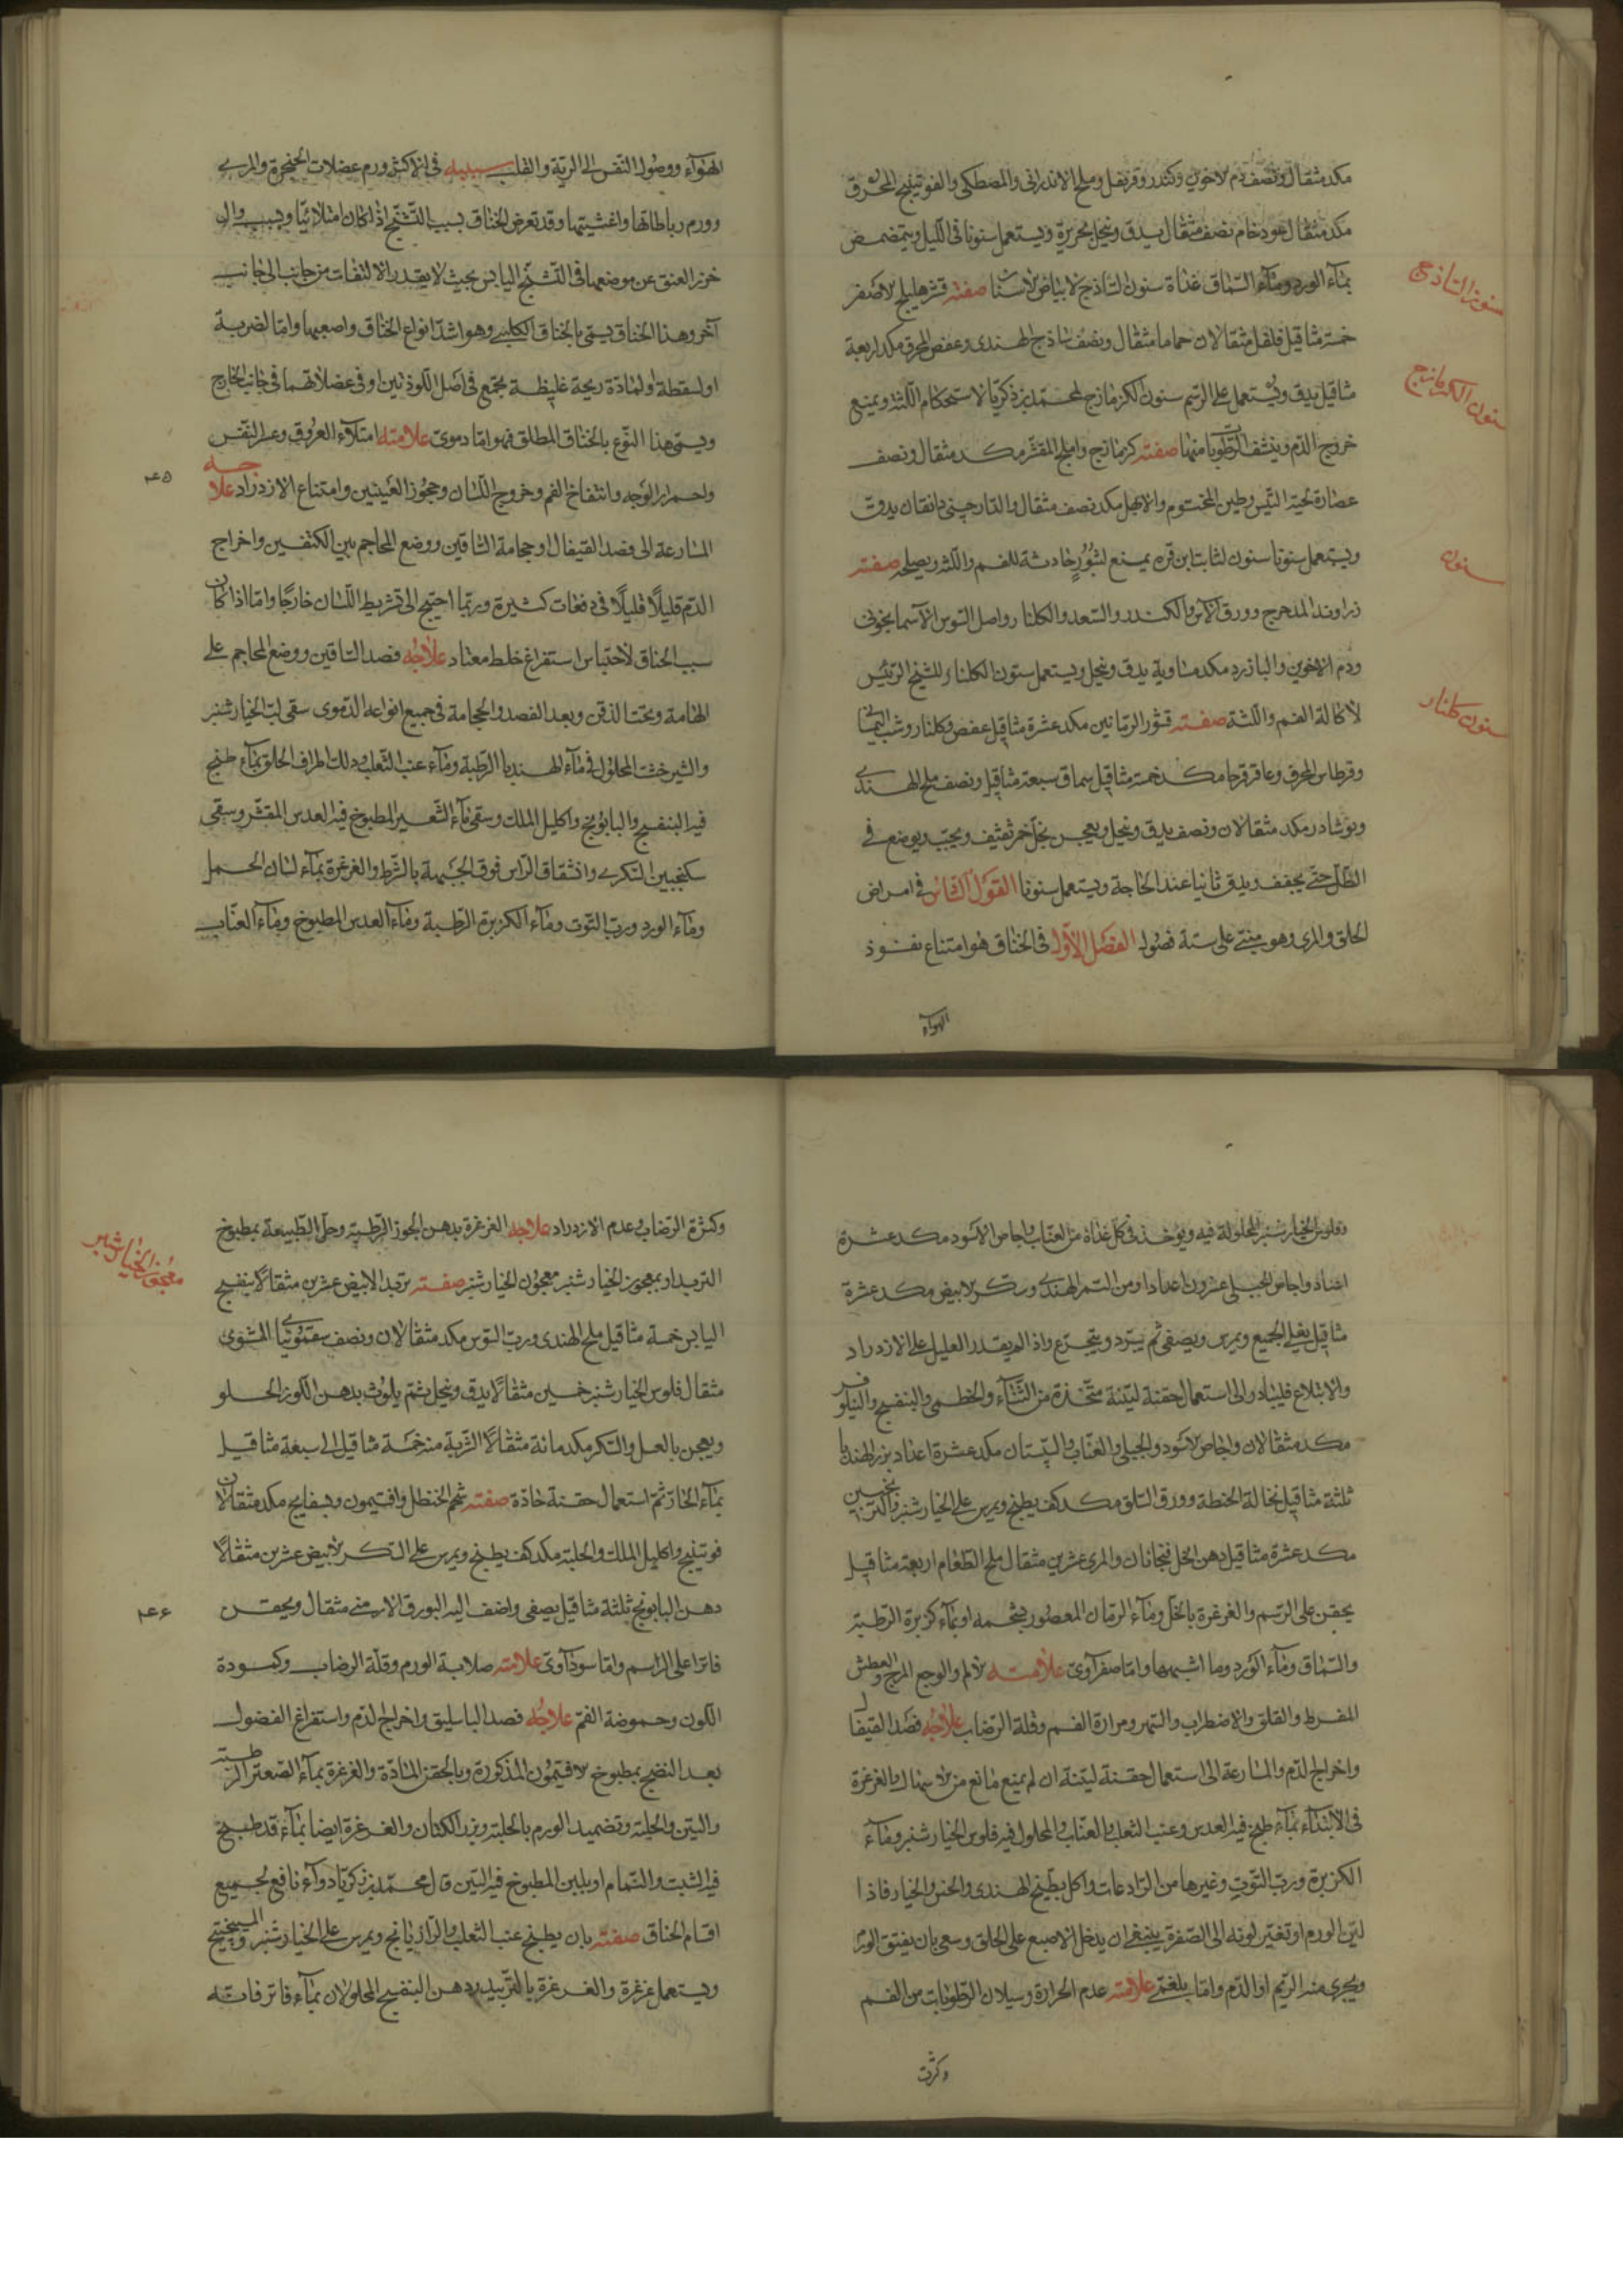 مكد مثقال ونصف دم الاخوين وكندر وقرنفل وملح الاندرانى والمصطكى والفوتينج المحرق
مكد مثقال عود خام نصف مثقال يدق وينخل بحريرة ويستعمل سنونا فى الليل ويتمضمض
بماء الورد وماء السماق غداة سنون الساذج لابياض الاسنان صفته قشر هليلج الاصفر
سنون الساذج
خمسة مثاقيل فلفل مثقالان حماما مثقال ونصف ساذج الهندى وعفص المحرق مكد اربعة
مثاقيل يدق ويستعمل على الرسم سنون الكزمازج لمحمد بن زكريا لاستحكام اللثة ويمنع
سنون الكزمازج
خروج الدم وينشف الرطوبات منها صفته كزمازج واملج المقشر مكد مثقال ونصف
عصارة لحية التيس وطين المختوم والابهل مكد نصف مثقال والدارچينى دانقان يدق
ويستعمل سنونا سنون لثابت ابن قره يمنع لبثور حادثة للفم واللثة ويصلحه صفته
سنون
زراوند المدحرج وورق الآس والكندر والسعد والكلنار واصل السوس الآسمانجونى
ودم الاخوين والبازرد مكد مساوية يدق وينخل ويستعمل سنون الكلنار للشيخ الرئيس
لاكالة الفم واللثة صفته قشور الرمانين مكد عشرة مثاقيل عفص وكلنار وشب اليمانى
سنون كلنار
وقرطاس المحرق وعاقرقرحا مكد خمسة مثاقيل سماق سبعة مثاقيل ونصف ملح الهندى
ونوشادر مكد مثقالان ونصف يدق وينخل ويعجن بخل خمر ثقيف ويحبب ويوضع فى
الظل حتى يجفف ويدق ثانيا عند الحاجة ويستعمل سنونا القول الثامن فى امراض
الحلق والمرى وهو مبنى على ستة فصول الفصل الاول فى الخناق هو امتناع نفوذ
الهواء
الهواء ووصول النفس الى الرية والقلب سببه فى الاكثر ورم عضلات الحنجرة والمرى
وورم رباطاتها واغشيتها وقد تعرض الخناق بسبب التشنج اذا كان امتلائيا وبسبب زوال
خرز العنق عن موضعها فى التشنج اليابس بحيث لا يقدر الالتفات من جانب الى جانب
آخر وهذا الخناق يسمى بالخناق الكلبى وهو اشد انواع الخناق واصعبها واما لضربة
او لسقطة او لمادة ريحة غليظة يجتمع فى اصل اللوذتين او فى عضلاتهما فى جانب الخارج
ويسمى هذا النوع بالخناق المطلق فهو اما دموى علامته امتلاء العروق وعسر النفس
واحمرار الوجه وانتفاخ الفم وخروج اللسان وجحوظ العينين وامتناع الازدراد علاجه
٢٤٥
المسارعة الى فصد القيفال او حجامة الساقين ووضع المحاجم بين الكتفين واخراج
الدم قليلا قليلا فى دفعات كثيرة وربما احتيج الى تشريط اللسان خارجا واما اذا كان
سبب الخناق لاحتباس استفراغ خلط معتاد علاجه فصد الساقين ووضع المحاجم على
الهامة وتحت الذقن وبعد الفصد والحجامة فى جميع انواعه الدموى سقى لب الخيارشنبر
والشيرخشت المحلول فى ماء الهندبا الرطبة وماء عنب الثعلب ودلك اطراف الحلق بماء طبخ
فيه البنفسج والبابونج واكليل الملك وسقى ماء الشعير المطبوخ فيه العدس المقشر وسقى
سكنجبين السكرى وانشقاق الراس فوق الجبهة بالشرط والغرغرة بماء لسان الحمل
وماء الورد ورب التوت وماء الكزبرة الرطبة وماء العدس المطبوخ وماء العناب
وفلوس الخيارشنبر المحلولة فيه ويؤخذ فى كل غداة من العناب واجاص الاسود مكد عشرة
اعداد واجاص الجبلى عشرون اعدادا ومن التمر الهندى وسكر الابيض مكد عشرة
مثاقيل يغلى الجميع ويمرس ويصفى ثم يبرد ويتجرع واذا لم يقدر العليل على الازدراد
والابتلاع فليبادر الى استعمال حقنة لينة متخذة من السناء والخطمى والبنفسج والنيلوفر
مكد مثقالان واجاص الاسود والجبلى والعناب والسپستان مكد عشرة اعداد بزر الهندبا
ثلثة مثاقيل نخالة الحنطة وورق السلق مكد كف يطبخ ويمرس على الخيارشنبر والترنجبين
مكد عشرة مثاقيل دهن الخل فنجانان والمرى عشرين مثقال ملح الطعام اربعة مثاقيل
يحقن على الرسم والغرغرة بالخل وماء الرمان المعصور بشحمه او بماء كزبرة الرطبة
والسماق وماء الورد وما اشبهها واما صفراوى علامته الالم والوجع المزعج والعطش
المفرط والقلق والاضطراب والسهر ومرارة الفم وقلة الرضاب علاجه فصد القيفال
واخراج الدم والمسارعة الى استعمال حقنة لينة ان لم يمنع مانع من الاسهال والغرغرة
فى الابتداء بماء طبخ فيه العدس وعنب الثعلب والعناب والمحلول فيه فلوس الخيارشنبر وماء
الكزبرة ورب التوت وغيرها من الرادعات واكل بطيخ الهندى والخس والخيار فاذا
لين الورم او تغير لونه الى الصفرة ينبغى ان يدخل الاصبع على الحلق وسعى بان يفتق الورم
ويجرى منه الريم او الدم واما بلغمى علامته عدم الحرارة وسيلان الرطوبات من الفم
وكثرت
وكثرة الرضاب وعدم الازدراد علاجه الغرغرة بدهن الجوز الرطبة وحل الطبيعة بمطبوخ
التربد او بمعجون الخيارشنبر معجون الخيارشنبر صفته تربد الابيض عشرين مثقالا بنفسج
معجون الخيارشنبر
اليابس خمسة مثاقيل ملح الهندى ورب السوس مكد مثقالان ونصف سقمونياى المشوى
مثقال فلوس الخيارشنبر خمسين مثقالا يدق وينخل ثم يلوث بدهن اللوز الحلو
ويعجن بالعسل والسكر مكد مائة مثقالا الشربة منه خمسة مثاقيل الى سبعة مثاقيل
بماء الحار ثم استعمال حقنة حادة صفته شحم الحنظل وافتيمون وبسفايج مكد مثقالان
فوتينج واكليل الملك والحلبة مكد كف يطبخ ويمرس على السكر الابيض عشرين مثقالا
دهن البابونج ثلثة مثاقيل يصفى واضف اليه البورق الارمنى مثقال ويحقن
٢٤٦
فاترا على الراسم واما سوداوى علامته صلابة الورم وقلة الرضاب وكمودة
اللون وحموضة الفم علاجه فصد الباسليق واخراج الدم واستفراغ الفضول
بعد النضج بمطبوخ الافتيمون المذكورة وبالحقن الحادة والغرغرة بماء الصعتر الرطبة
والتين والحلبة وتضميد الورم بالحلبة وبزر الكتان والغرغرة ايضا بماء قد طبخ
فيه الشبت والنمام او بلبن المطبوخ فيه التين قال محمد بن زكريا دواء نافع لجميع
اقسام الخناق صفته بان يطبخ عنب الثعلب والرازيانج ويمرس على الخيارشنبر والميبختج
ويستعمل غرغرة والغرغرة بالتربد ودهن البنفسج المحلولان بماء فاتر فانه